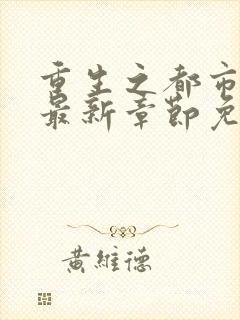 重生之都市
最新章節免
黃維德